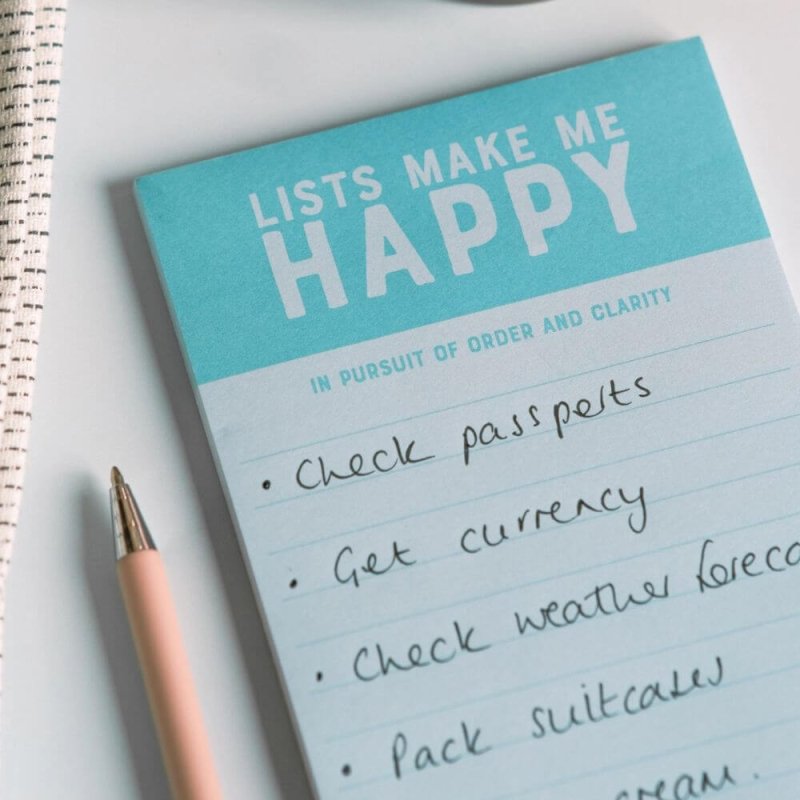 LISTS MAKE ME
HAPPY
IN PURSUIT OF ORDER AND CLARITY
• Check passports
• Get currency
• Check weather foreca
• Pack suitcases
cream.